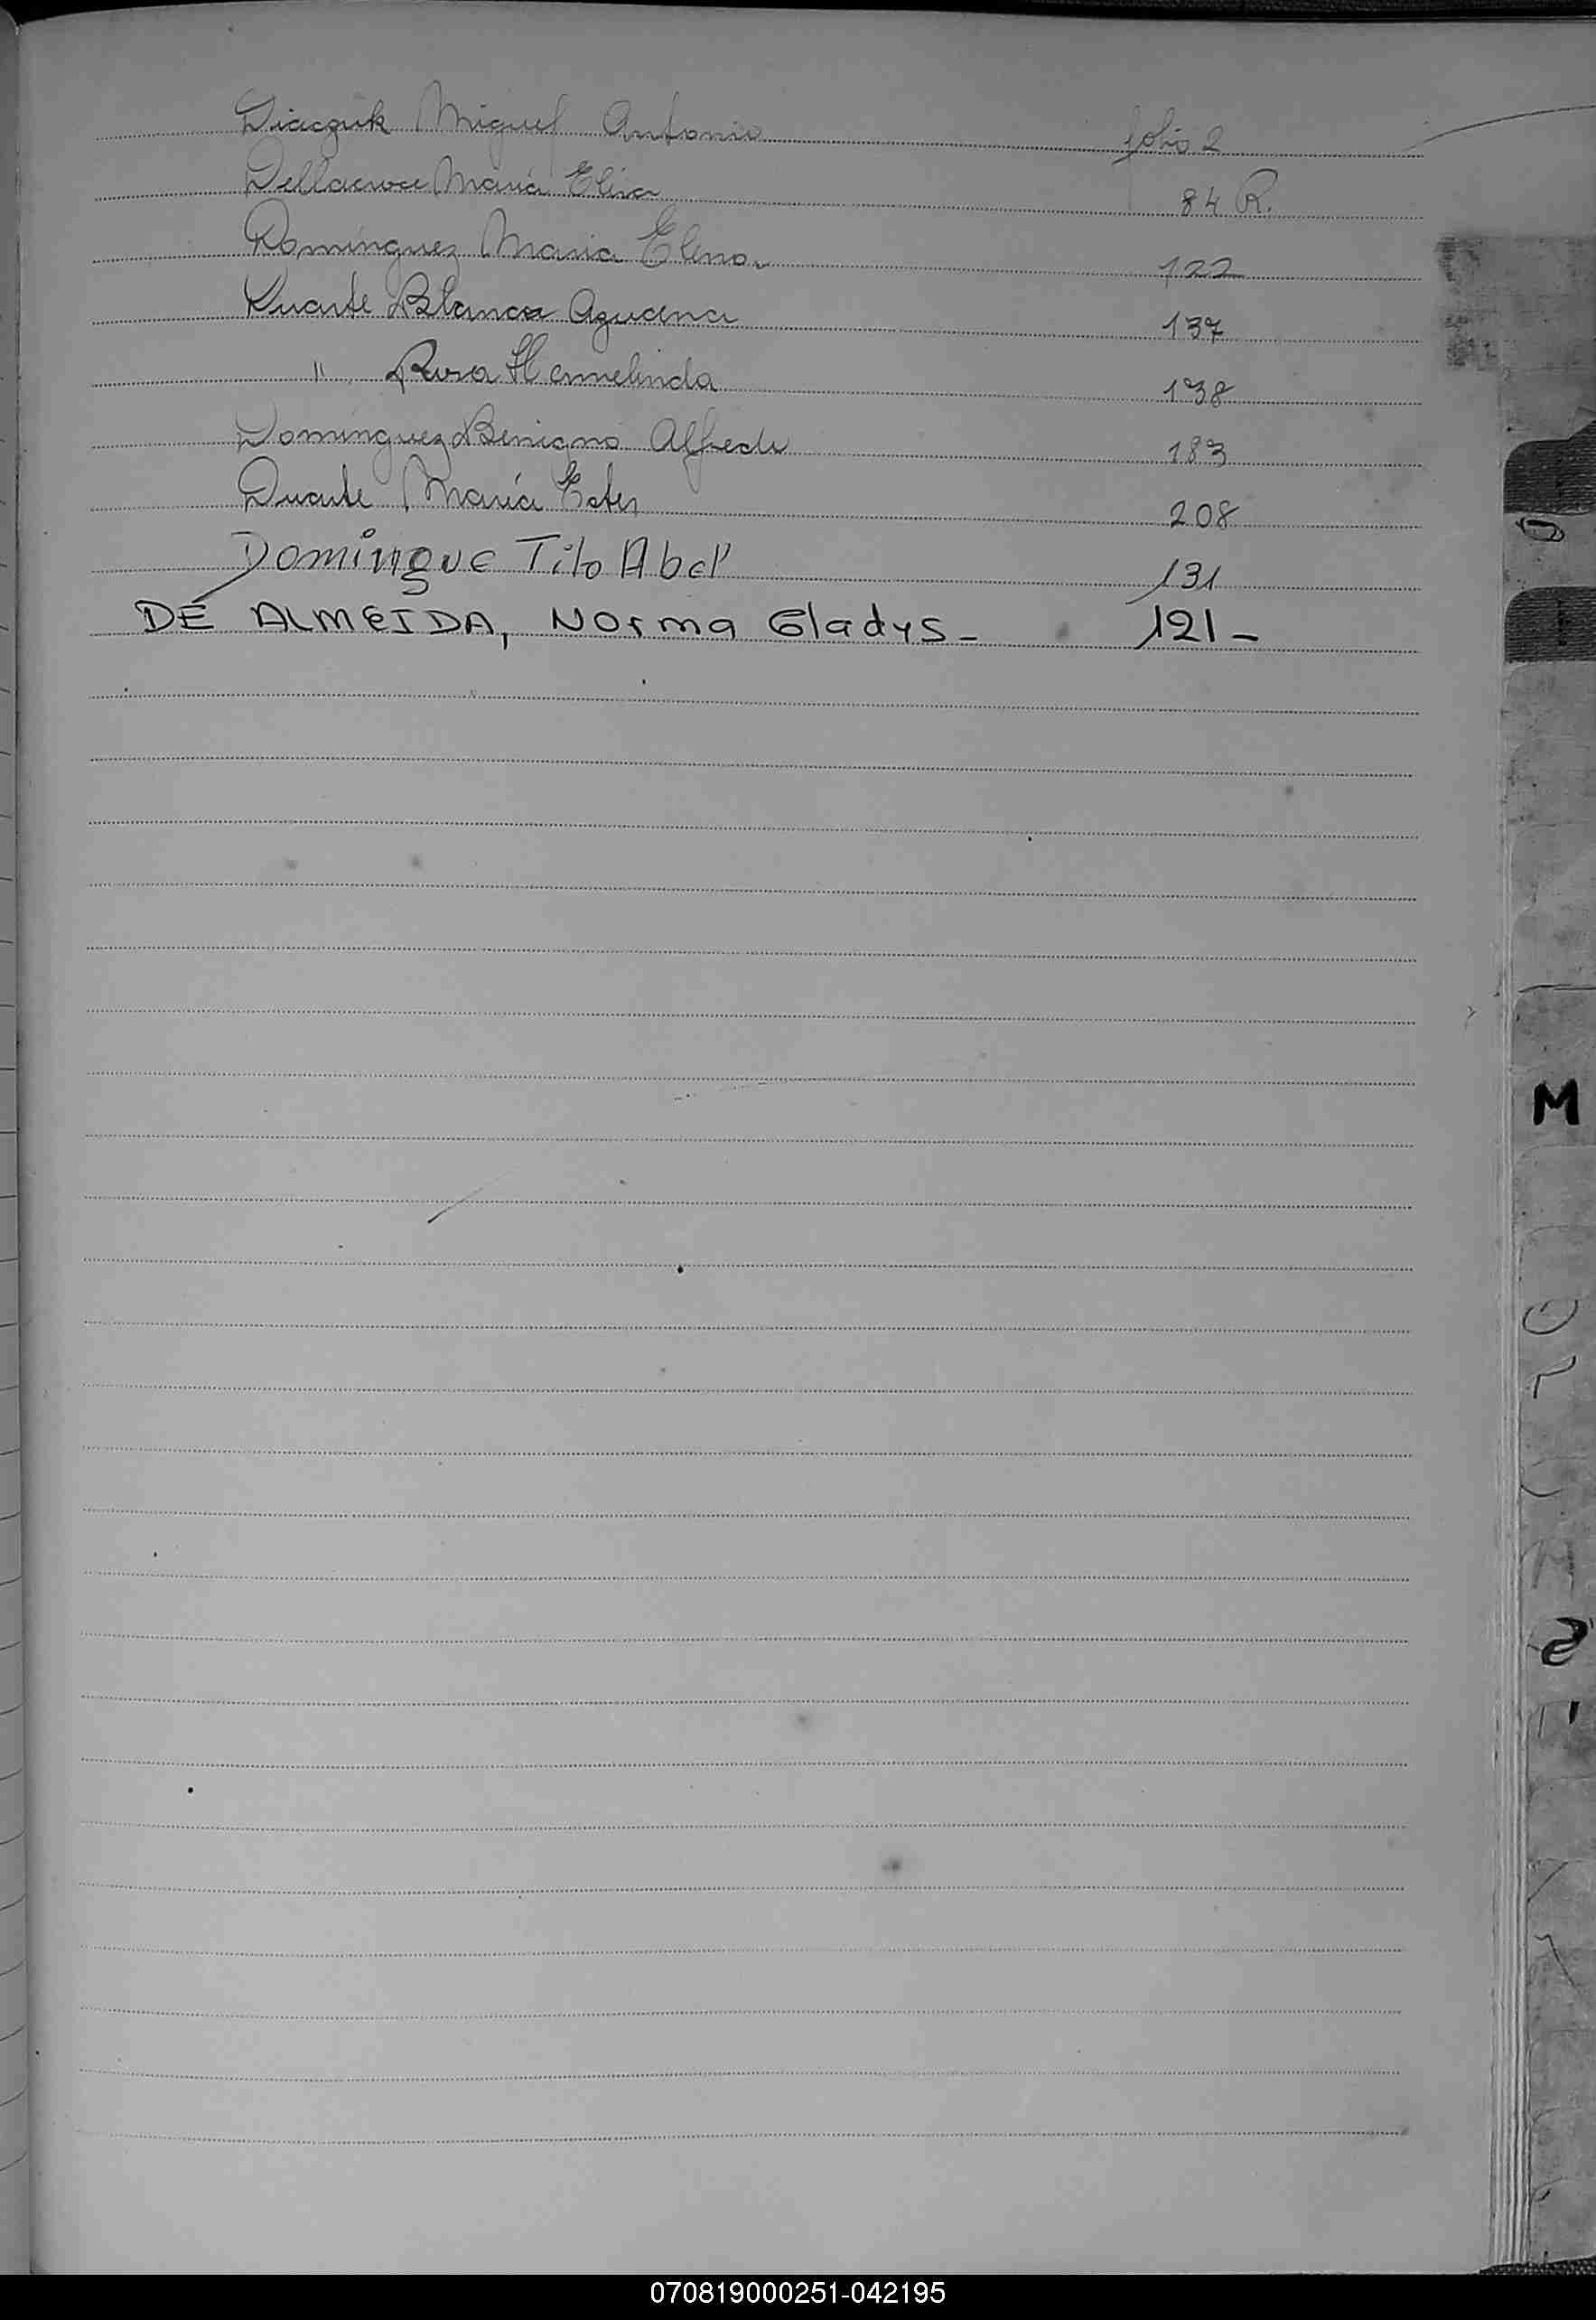 Diaczuk Miguel Antonio folio 2
Dellacroce María Elisa 84 R.
Dominguez Maria Elena 122
Duarte Blanca Azucena 137
" Rosa Hermelinda 138
Dominguez Benigno Alfredo 183
Duarte María Ester 208
Domingue Tito Abel 131
DE ALMEIDA, Norma Gladys - 121 -
M
070819000251-042195